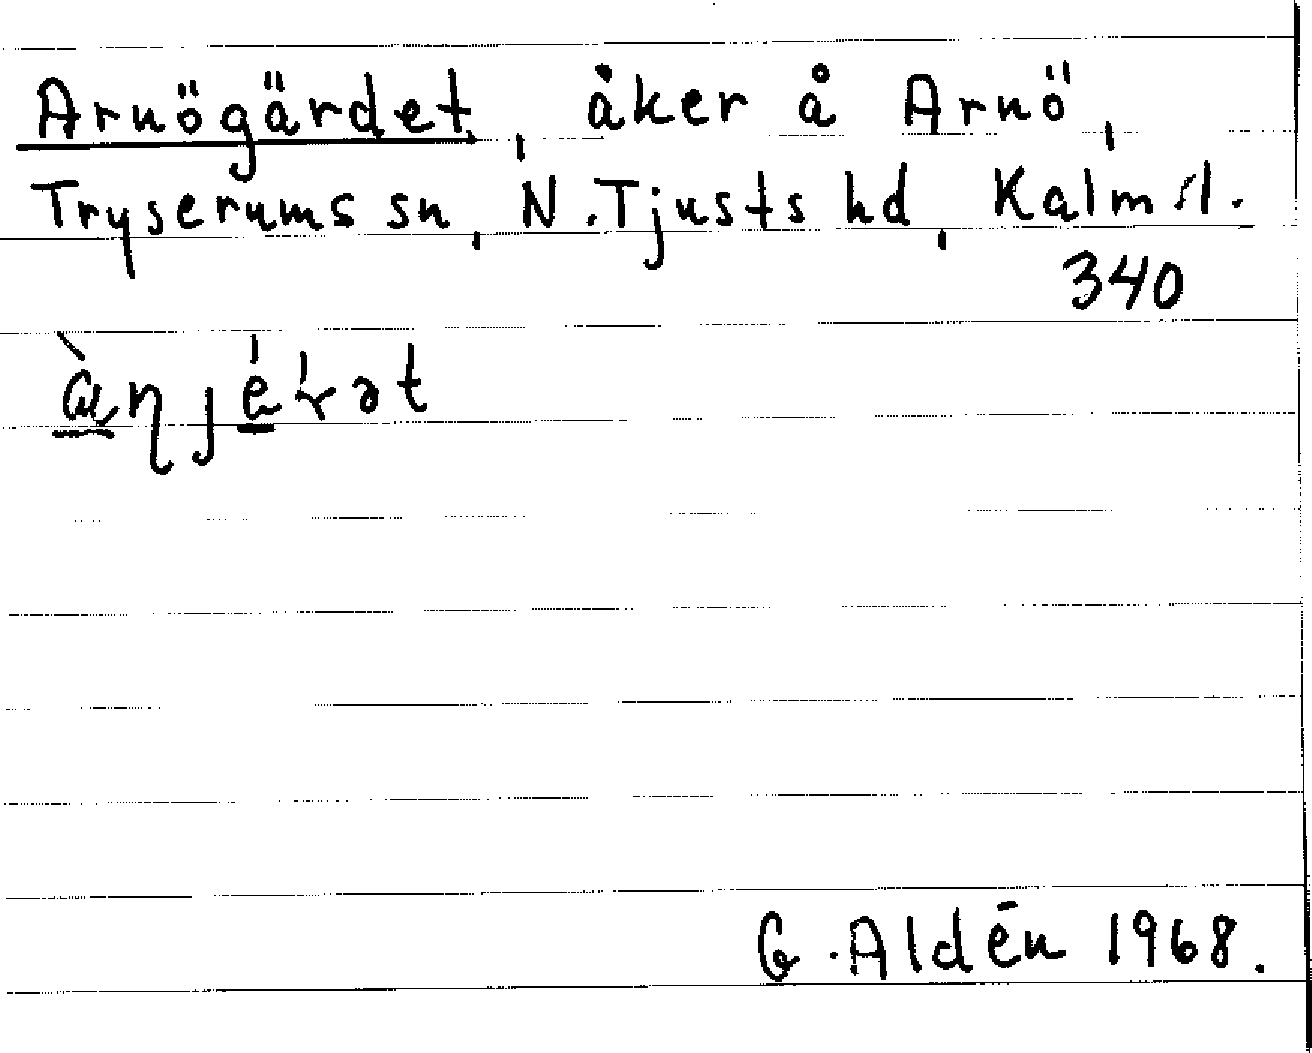 Arnögärdet, åker å Arnö,
Tryserums sn, N. Tjusts hd, Kalm. l.
340
G. Aldén 1968.